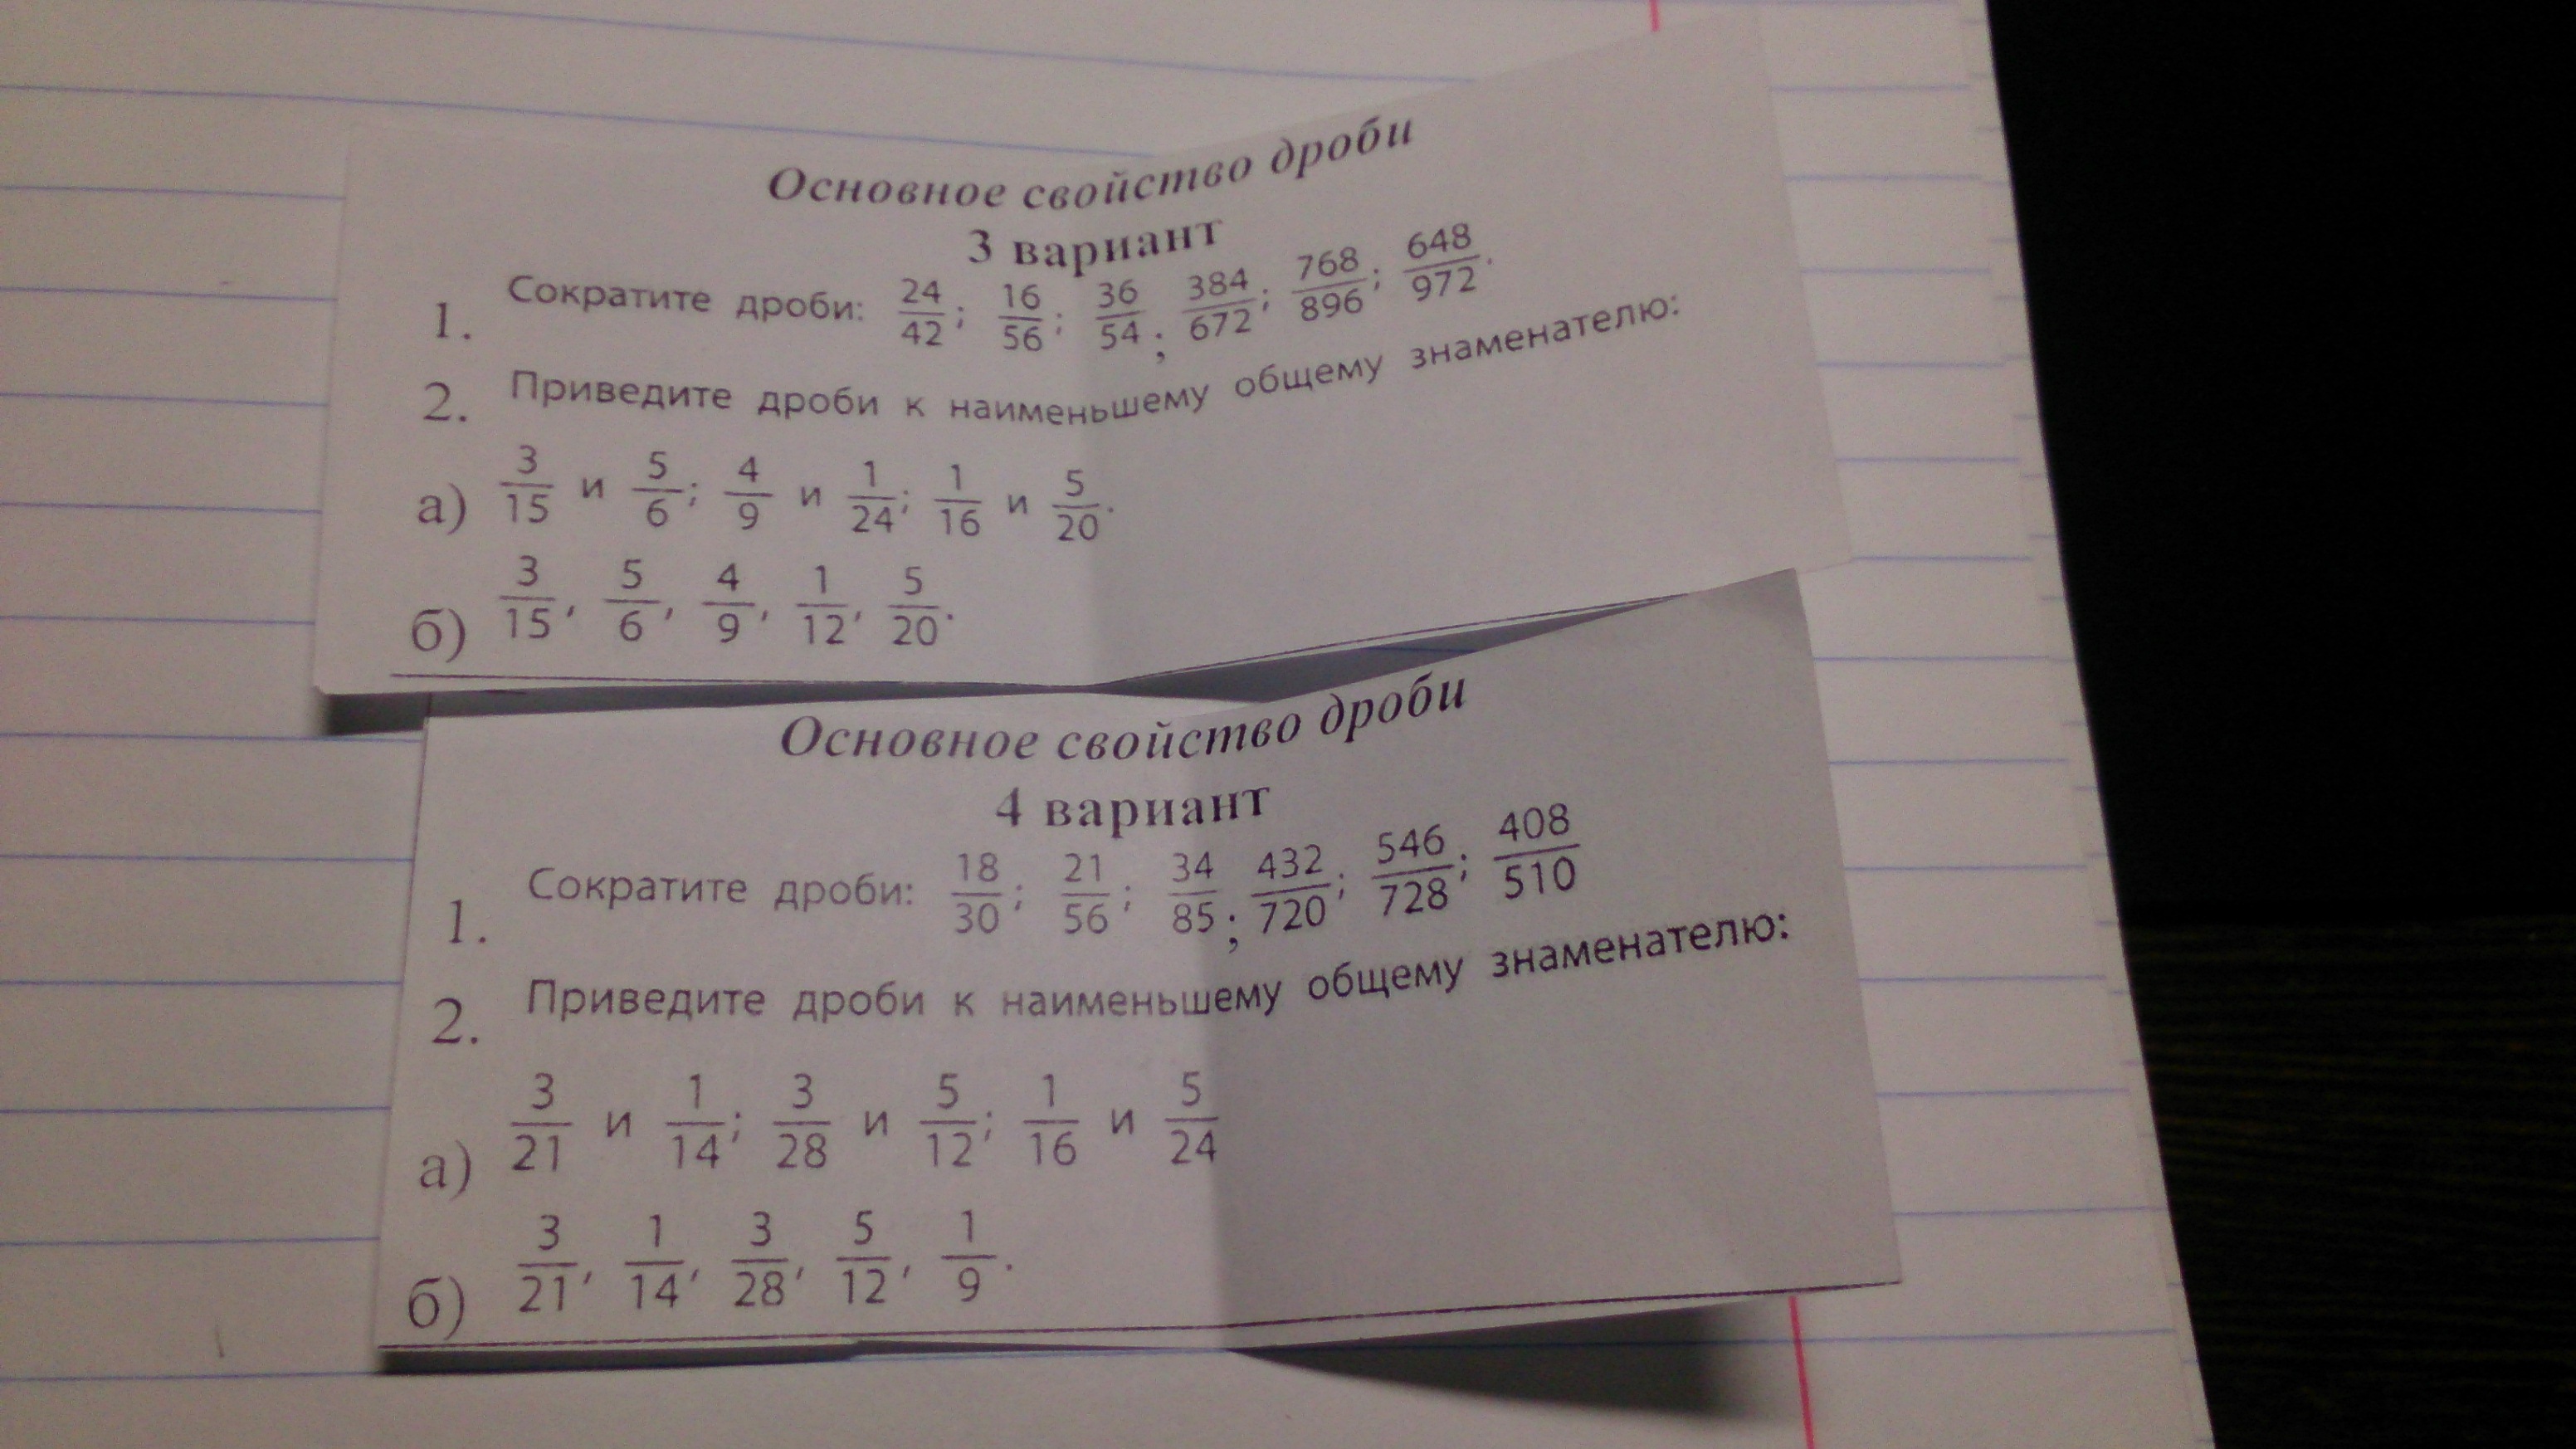 Основное свойство дроби
3 вариант
1. Сократите дроби: 24/42; 16/56; 36/54; 384/672; 768/896; 648/972.
2. Приведите дроби к наименьшему общему знаменателю:
а) 3/15 и 5/6; 4/9 и 1/24; 1/16 и 5/20.
б) 3/15, 5/6, 4/9, 1/12, 5/20.
Основное свойство дроби
4 вариант
1. Сократите дроби: 18/30; 21/56; 34/85; 432/720; 546/728; 408/510
2. Приведите дроби к наименьшему общему знаменателю:
а) 3/21 и 1/14; 3/28 и 5/12; 1/16 и 5/24
б) 3/21, 1/14, 3/28, 5/12, 1/9.